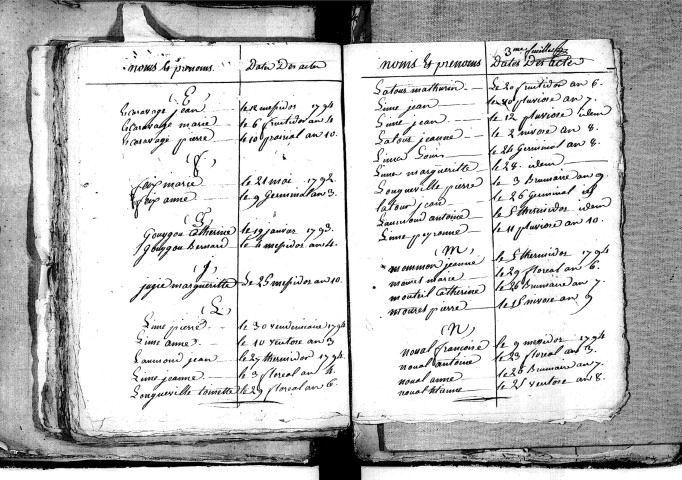 noms & prenoms Dates Des actes
(E)
Ecaravage jean le 12 messidor 1794
Ecaravage marie le 6 fructidor an 4
Ecaravage pierre le 10 prairial an 10.
(F)
faix marie le 21 mai 1792
faix anne le 9 Germinal an 3.
(G)
Gouygou Catherine le 19 janvier 1793.
Gouygou Bernard le 4 messidor an 4.
(J)
jugie margueritte Le 25 messidor an 10.
(L)
Lime pierre le 30 vendemeaue 1794
Lime anne le 10 ventose an 3
Laumond jean le 27 thermidor 1794.
Lime jeanne le 3 floreal an 4.
Longueville toinette le 29 floreal an 6.
3me feuillet
noms & prenoms Dates Des actes
Latour mathurin Le 20 fructidor an 6.
Lime jean le 20 pluviose an 7.
Lime jean le 12 pluviose idem
Latour jeanne le 2 nivose an 8.
Lima Louis le 24 Germinal an 8.
Lime margueritte le 28 idem
Longueville pierre le 3 Brumaire an 9.
latour jean le 26 Germinal id
Laumond antoine le 5 thermidor idem
Lime peyronne le 11 pluviose an 10.
(M)
mommon jeanne le 5 thermidor 1794
mouret marie le 29 floreal an 6.
monteil Catherine le 26 Brumaire an 7.
mouret pierre le 15 nivose an 9
(N)
noual francoise le 9 messidor 1794
noual antoine le 23 floreal an 3.
noual anne le 26 Brumaire an 7.
noual le 25 ventose an 8.